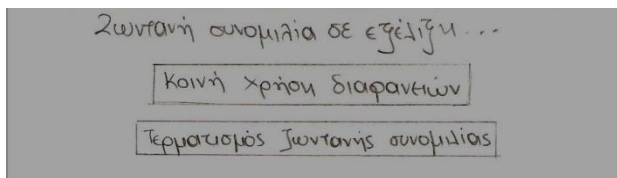 Ζωντανή συνομιλία σε εξέλιξη...
Κοινή χρήση διαφανειών
Τερματισμός ζωντανής συνομιλίας